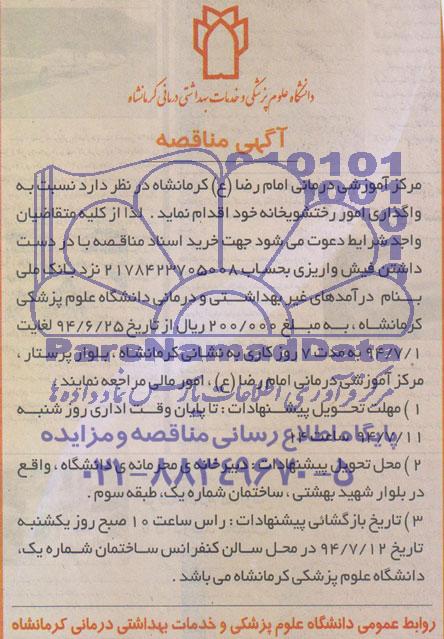 دانشگاه علوم پزشکی و خدمات بهداشتی درمانی کرمانشاه
آگهی مناقصه
مرکز آموزشی درمانی امام رضا (ع) کرمانشاه در نظر دارد نسبت به
واگذاری امور رختشویخانه خود اقدام نماید . لذا از کلیه متقاضیان
واجد شرایط دعوت می شود جهت خرید اسناد مناقصه با در دست
داشتن فیش واریزی بحساب ۲۱۷۸۴۲۳۷۰۵۰۰۸ نزد بانک ملی
بنام درآمدهای غیر بهداشتی و درمانی دانشگاه علوم پزشکی
کرمانشاه ، به مبلغ ۲۰۰/۰۰۰ ریال از تاریخ ۹۴/۶/۲۵ لغایت
۹۴/۷/۱ به مدت ۷ روز کاری به نشانی کرمانشاه ، بلوار پرستار ،
مرکز آموزشی درمانی امام رضا (ع) ، امور مالی مراجعه نمایند .
۱ ) مهلت تحویل پیشنهادات : تا پایان وقت اداری روز شنبه
۹۴/۷/۱۱ ساعت ۱۴
۲ ) محل تحویل پیشنهادات : دبیرخانه ی محرمانه ی دانشگاه ، واقع
در بلوار شهید بهشتی ، ساختمان شماره یک ، طبقه سوم .
۳ ) تاریخ بازگشائی پیشنهادات : راس ساعت ۱۰ صبح روز یکشنبه
تاریخ ۹۴/۷/۱۲ در محل سالن کنفرانس ساختمان شماره یک ،
دانشگاه علوم پزشکی کرمانشاه می باشد .
روابط عمومی دانشگاه علوم پزشکی و خدمات بهداشتی درمانی کرمانشاه
ParsNamadData
مرکز فرآوری اطلاعات پارس نماد داده ها
پایگاه اطلاع رسانی مناقصه و مزایده
۰۲۱-۸۸۳۴۹۶۷۰-۵